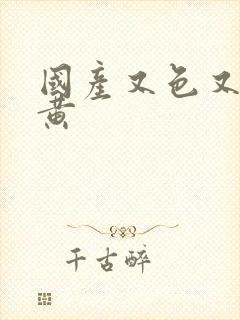 國產又色又
黄
千古醉